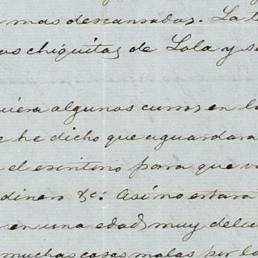 mas descansadas. La
chiquitas de Lola y
algunos en la
he dicho que aguardara
el escritorio para que
dinero &c: Así no estara
en una edad muy
muchas cosas malas por lo